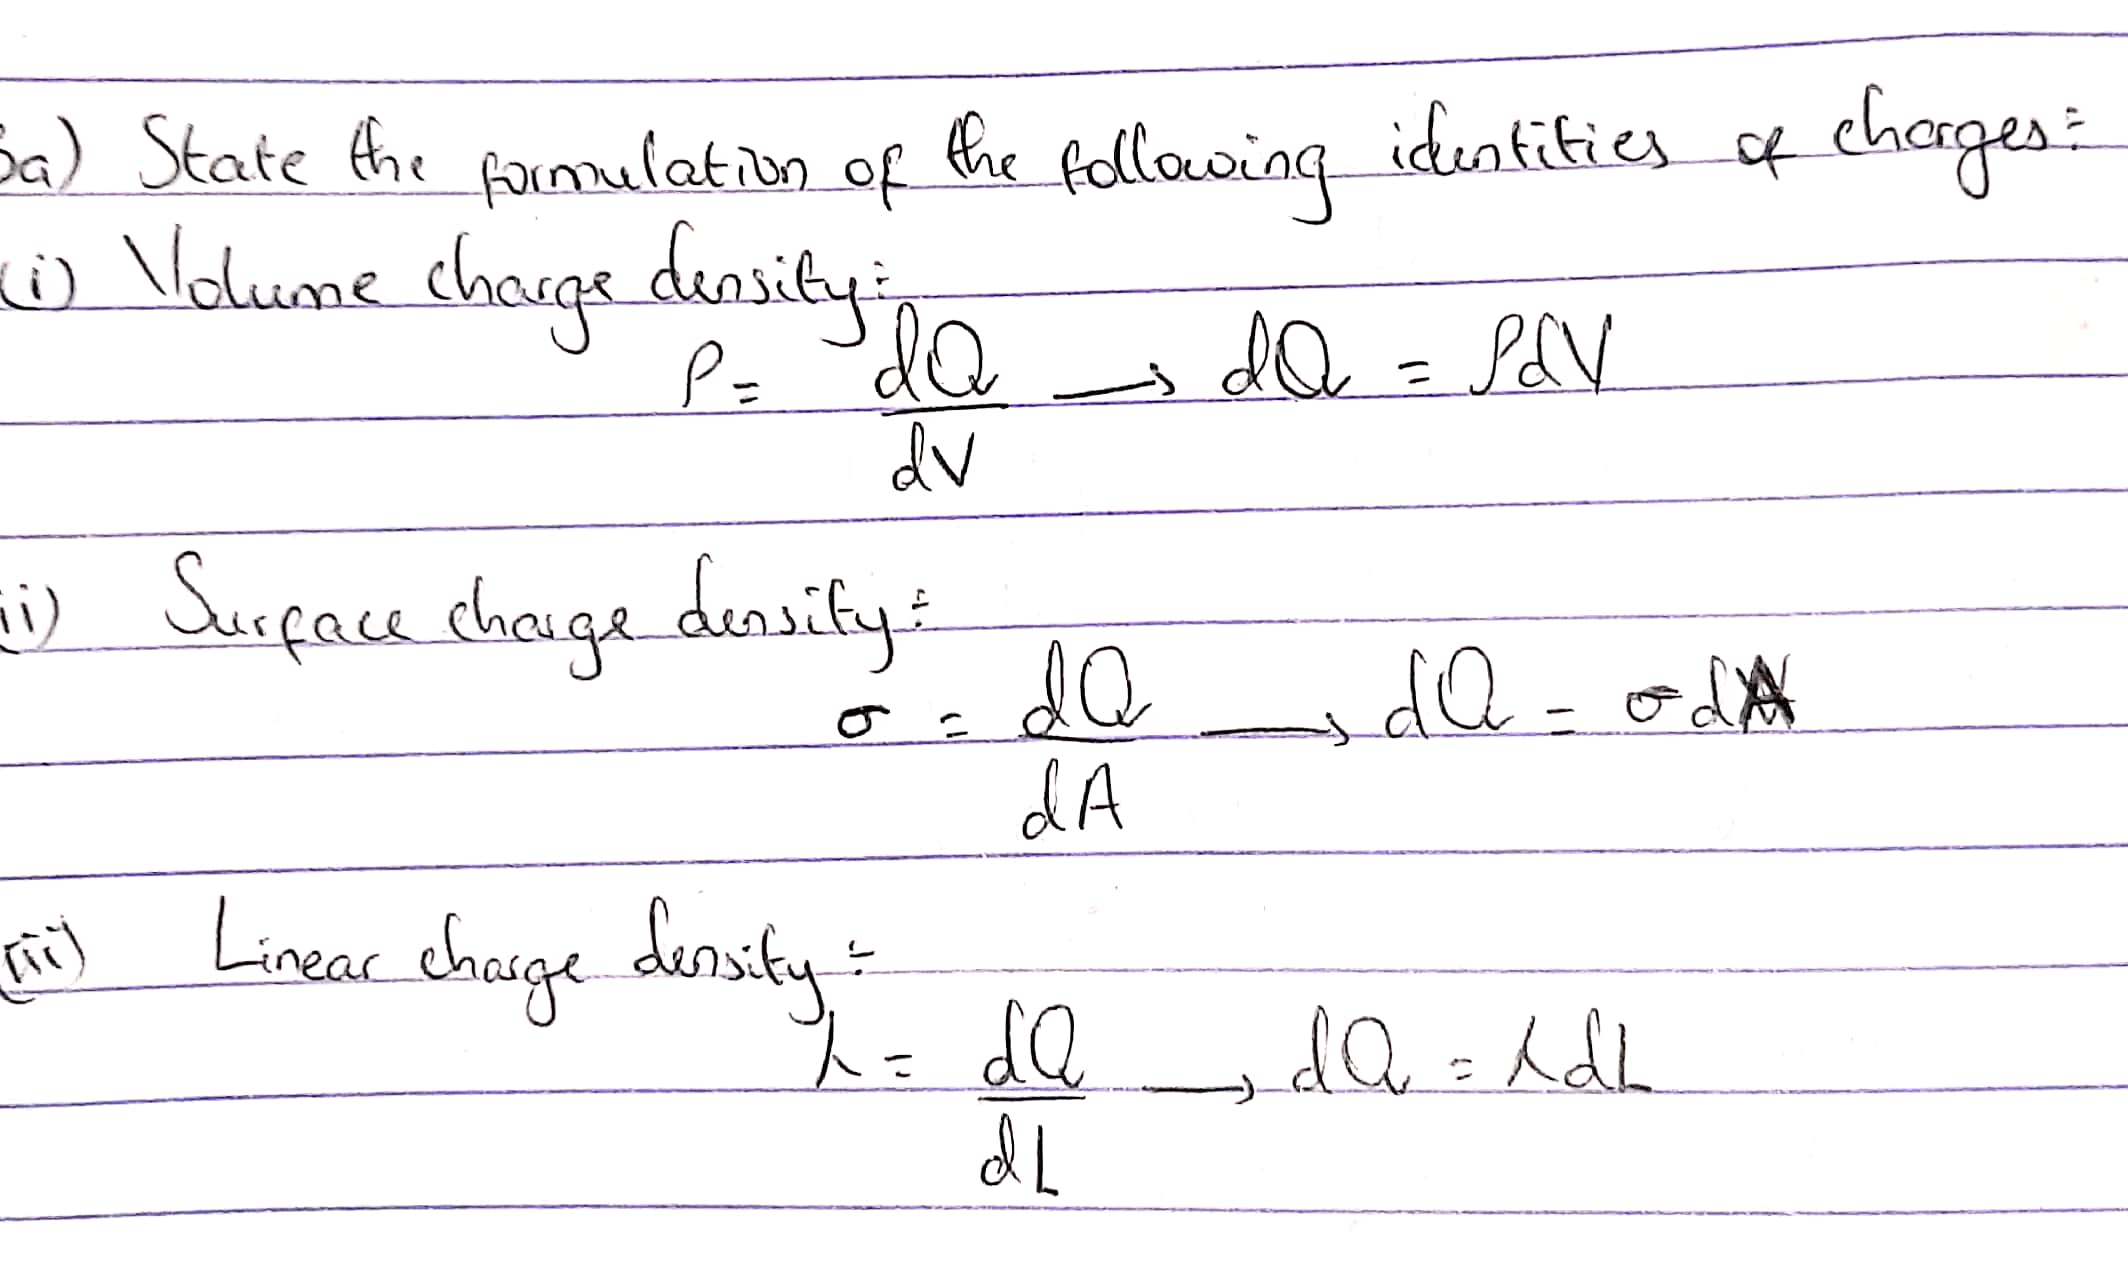 3a) State the formulation of the following identities of charges:
(i) Volume charge density:
ρ = dQ/dV → dQ = ρdV
ii) Surface charge density:
σ = dQ/dA → dQ = σdA
(iii) Linear charge density:
λ = dQ/dL → dQ = λdL